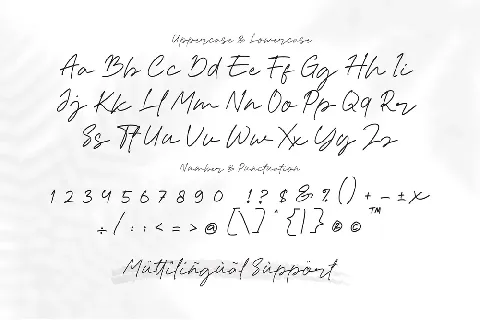 Uppercase & Lowercase
Aa Bb Cc Dd Ee Ff Gg Hh Ii
Jj Kk Ll Mm Nn Oo Pp Qq Rr
Ss Tt Uu Vv Ww Xx Yy Zz
Number & Punctuation
1 2 3 4 5 6 7 8 9 0 ! ? $ & % ( ) + - ± ×
÷ / : ; < = > @ [ \ ] ^ { | } ® © ™
Müttilingüäl Sùppört